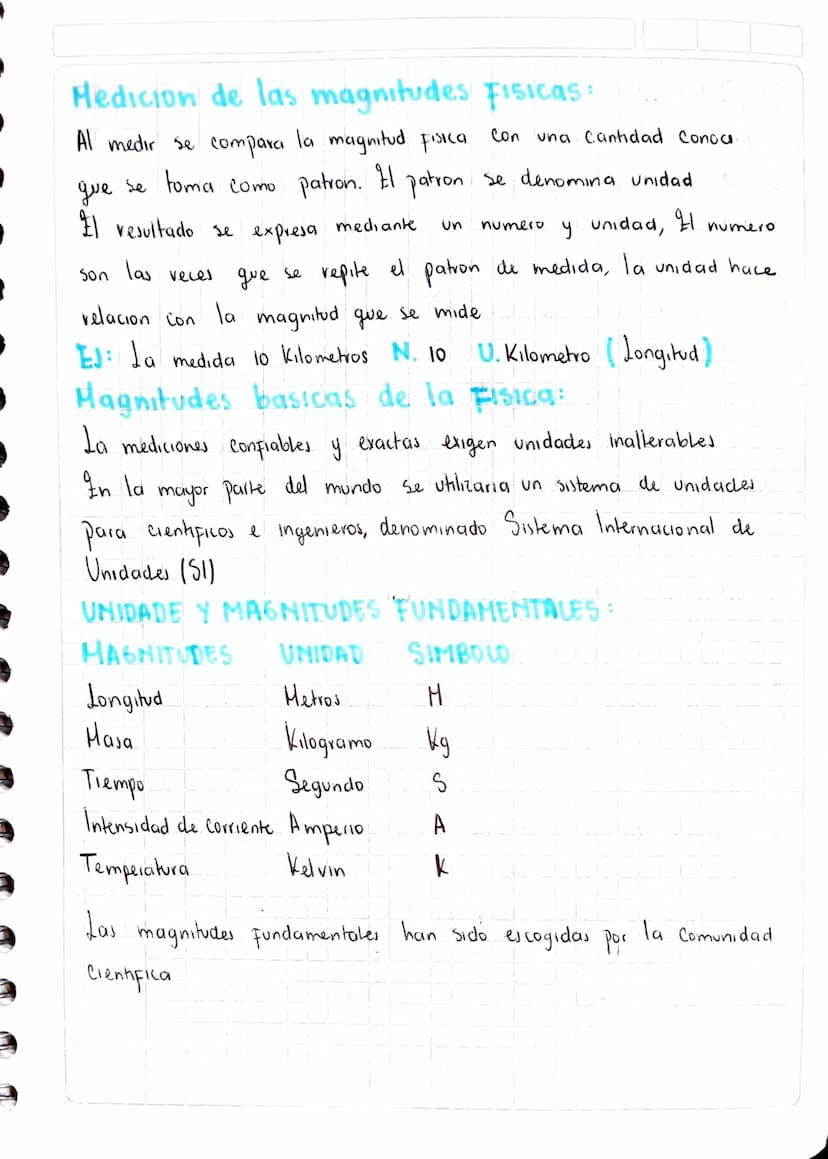 Medicion de las magnitudes Fisicas:
Al medir se compara la magnitud Fisica con una cantidad conoci
que se toma como patron. El patron se denomina unidad
El resultado se expresa mediante un numero y unidad, El numero
son las veces que se repite el patron de medida, la unidad hace
relacion con la magnitud que se mide
EJ: La medida 10 Kilometros N. 10 U. Kilometro (Longitud)
Magnitudes basicas de la Fisica:
La mediciones confiables y exactas exigen unidades inalterables
En la mayor parte del mundo se utilizaria un sistema de unidades
para cientificos e ingenieros, denominado Sistema Internacional de
Unidades (SI)
UNIDADE Y MAGNITUDES FUNDAMENTALES:
MAGNITUDES UNIDAD SIMBOLO
Longitud Metros M
Masa Kilogramo Kg
Tiempo Segundo S
Intensidad de Corriente Amperio A
Temperatura Kelvin K
Las magnitudes Fundamentales han sido escogidas por la Comunidad
Cientifica